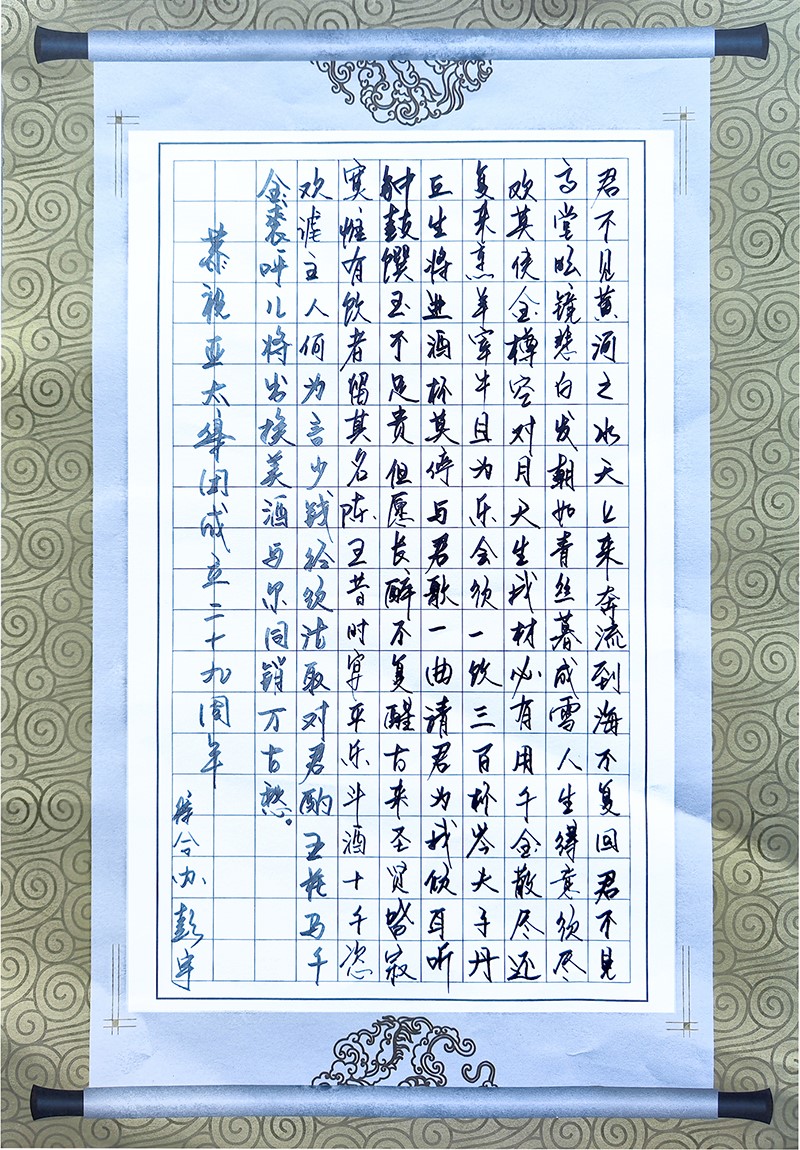 君不见黄河之水天上来奔流到海不复回君不见
高堂明镜悲白发朝如青丝暮成雪人生得意须尽
欢莫使金樽空对月天生我材必有用千金散尽还
复来烹羊宰牛且为乐会须一饮三百杯岑夫子丹
丘生将进酒杯莫停与君歌一曲请君为我倾耳听
钟鼓馔玉不足贵但愿长醉不复醒古来圣贤皆寂
寞惟有饮者留其名陈王昔时宴平乐斗酒十千恣
欢谑主人何为言少钱径须沽取对君酌五花马千
金裘呼儿将出换美酒与尔同销万古愁。
恭祝亚太集团成立二十九周年
综合办彭宇